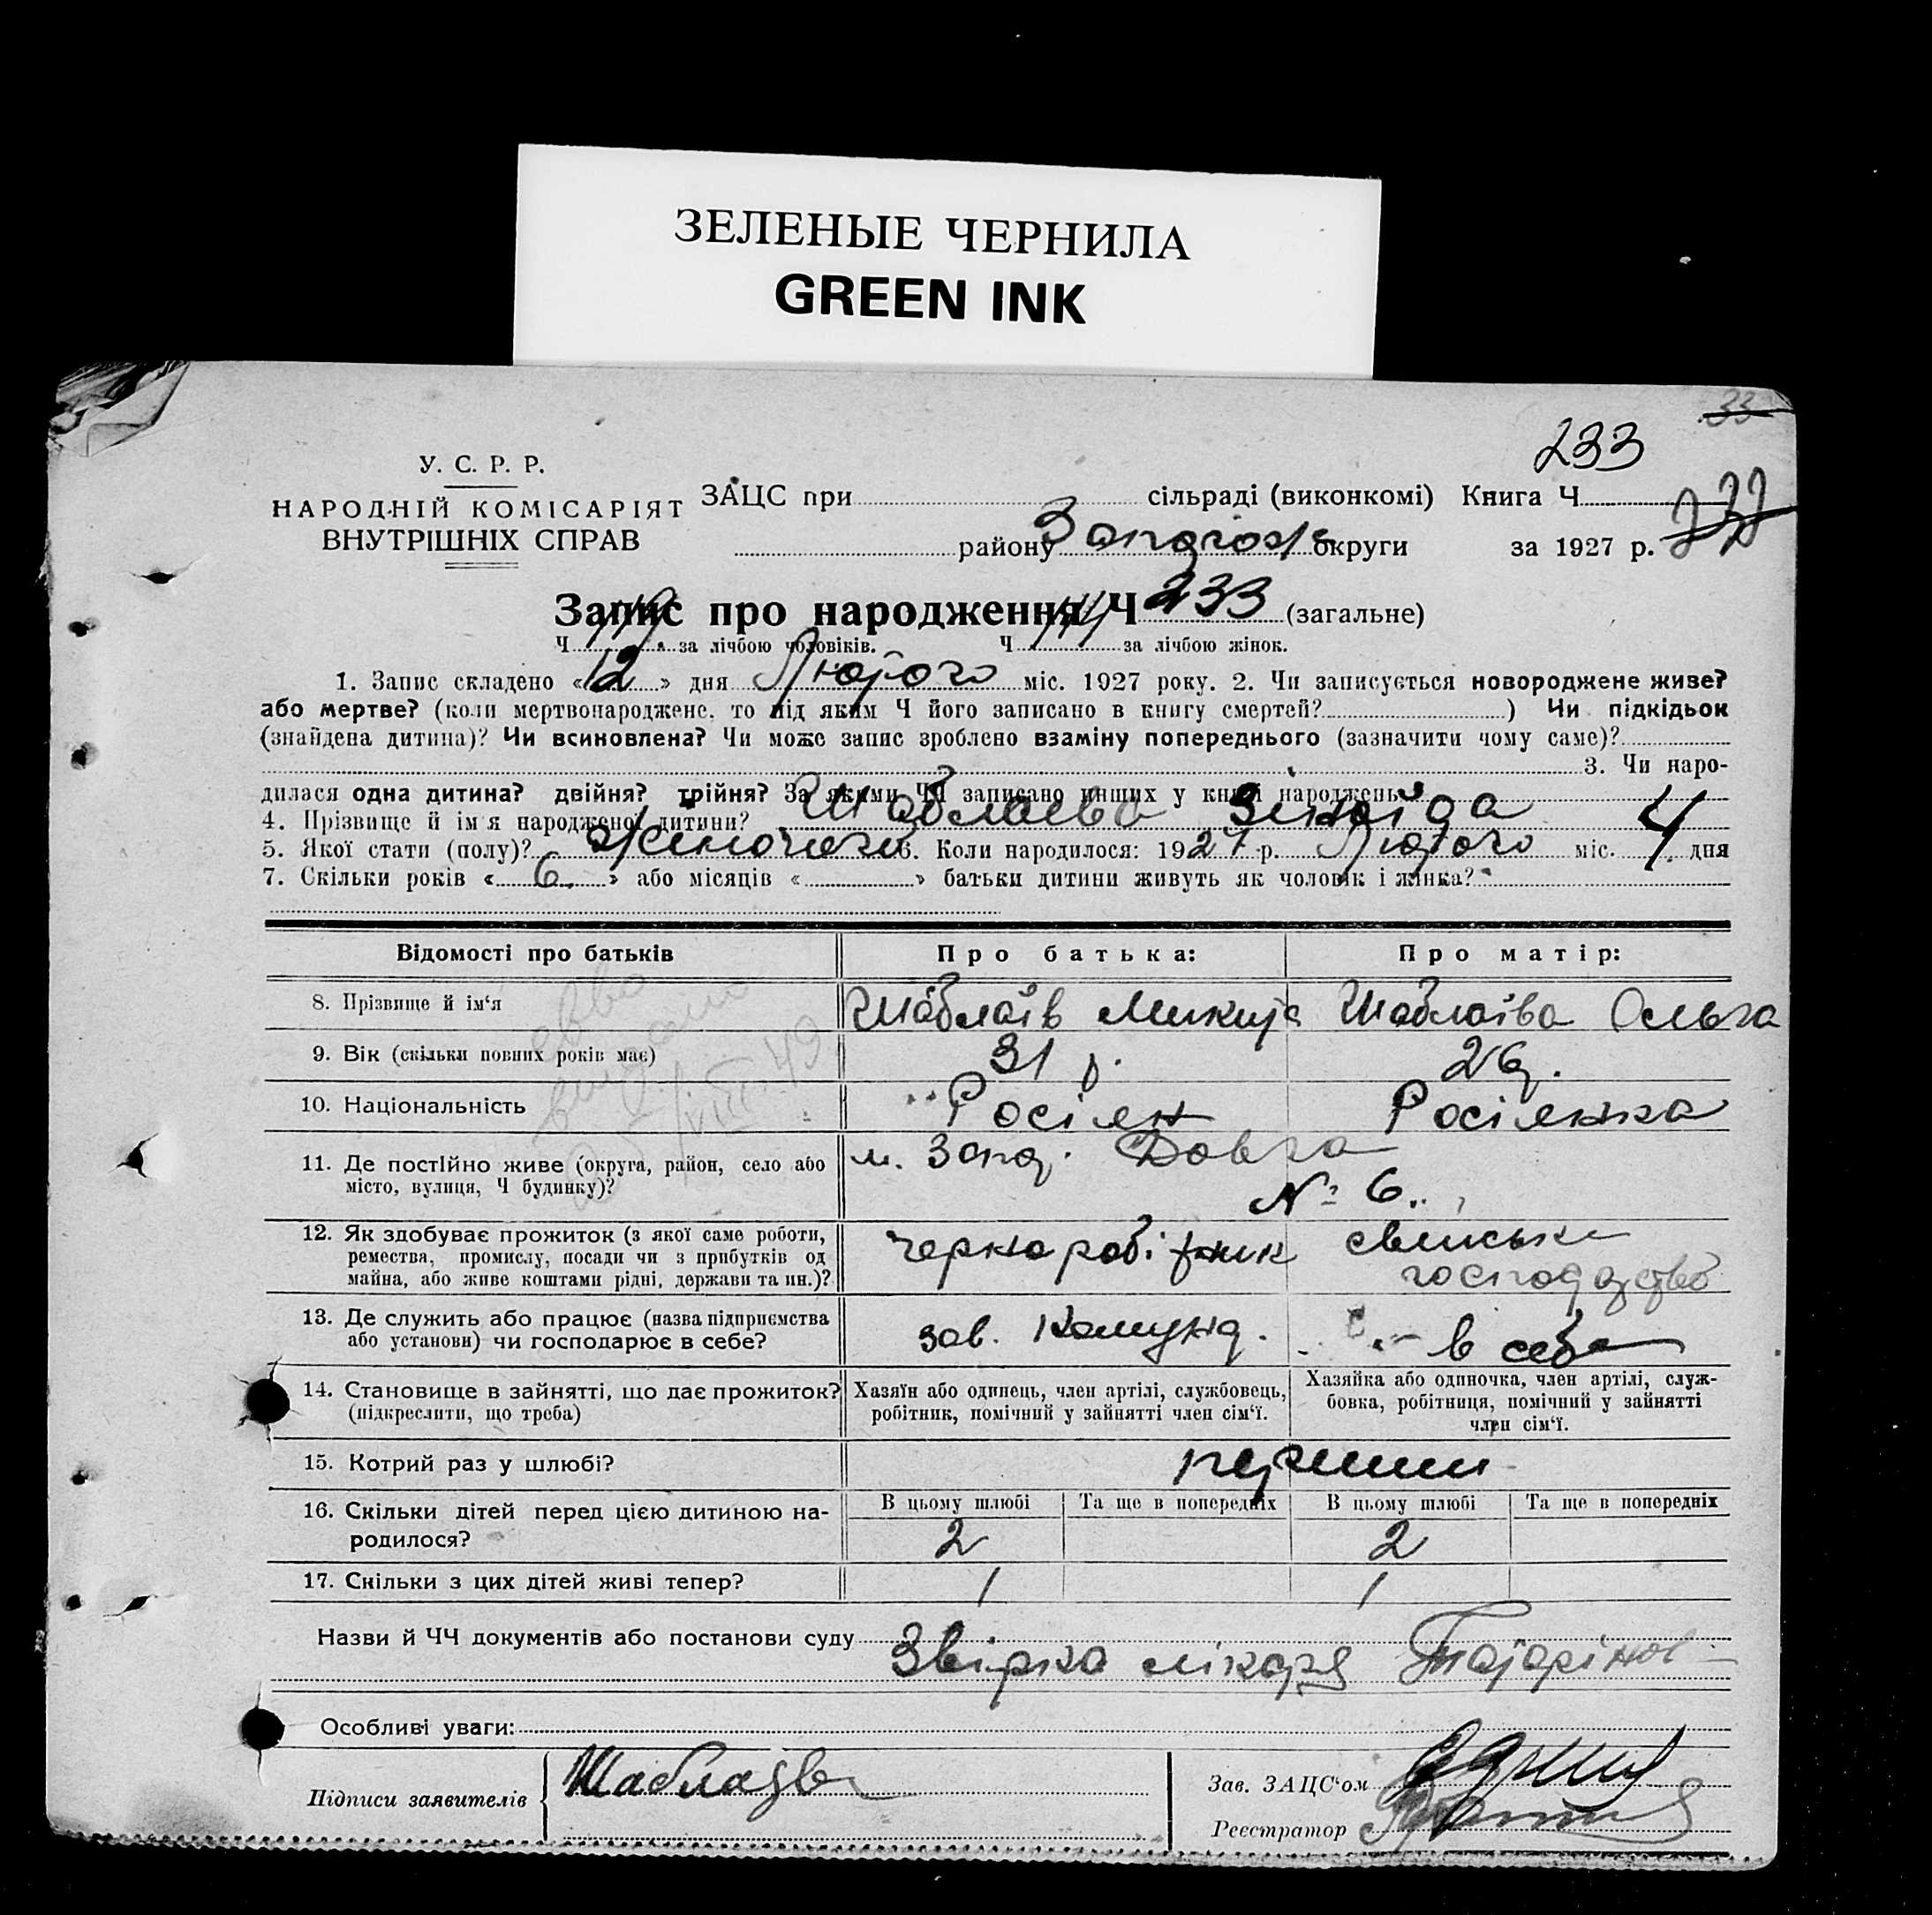 ЗЕЛЕНЫЕ ЧЕРНИЛА
GREEN INK
33
233
У. С. Р. Р.
НАРОДНІЙ КОМІСАРІЯТ
ВНУТРІШНІХ СПРАВ
ЗАЦС при сільраді (виконкомі) Книга Ч.
району округи за 1927 р. 232
Запис про народження Ч 233 (загальне)
Ч 119 за лічбою чоловіків. Ч 114 за лічбою жінок.
1. Запис складено «12» дня Лютого міс. 1927 року. 2. Чи записується новороджене живе?
або мертве? (коли мертвонароджене, то під яким Ч його записано в книгу смертей?) Чи підкідьок
(знайдена дитина)? Чи всиновлена? Чи може запис зроблено взаміну попереднього (зазначити чому саме)?
3. Чи наро-
дилася одна дитина? двійня? трійня? За якими ЧЧ записано инших у книзі народжень
4. Прізвище й ім'я народженої дитини? Шаблаєва Зінаїда
5. Якої стати (полу)? жіночого 6. Коли народилося: 1927 р. Лютого міс. 4 дня
7. Скільки років «6» або місяців «» батьки дитини живуть як чоловік і жінка?
Відомості про батьків Про батька: Про матір:
8. Прізвище й ім'я Шаблаїв Микита Шаблаїва Ольга
9. Вік (скільки повних років має) 31 р. 26 р.
10. Національність Росіян Росіянка
11. Де постійно живе (округа, район, село або
місто, вулиця, Ч будинку)?
м. Зап. Довга
№ 6
12. Як здобуває прожиток (з якої саме роботи,
ремества, промислу, посади чи з прибутків од
майна, або живе коштами рідні, держави та ин.)?
чернаробітник
господарство
13. Де служить або працює (назва підприємства
або установи) чи господарює в себе?
зав. Комунар. в себе
14. Становище в зайнятті, що дає прожиток?
(підкреслити, що треба)
Хазяїн або одинець, член артілі, службовець,
робітник, помічний у зайнятті член сім'ї.
Хазяйка або одиночка, член артілі, служ-
бовка, робітниця, помічний у зайнятті
член сім'ї.
15. Котрий раз у шлюбі? перший
16. Скільки дітей перед цією дитиною на-
родилося?
В цьому шлюбі Та ще в попередніх В цьому шлюбі Та ще в попередніх
2 2
17. Скільки з цих дітей живі тепер? 1 1
Назви й ЧЧ документів або постанови суду
Звірка лікаря
Особливі уваги:
Підписи заявителів
Зав. ЗАЦС'ом
Реєстратор